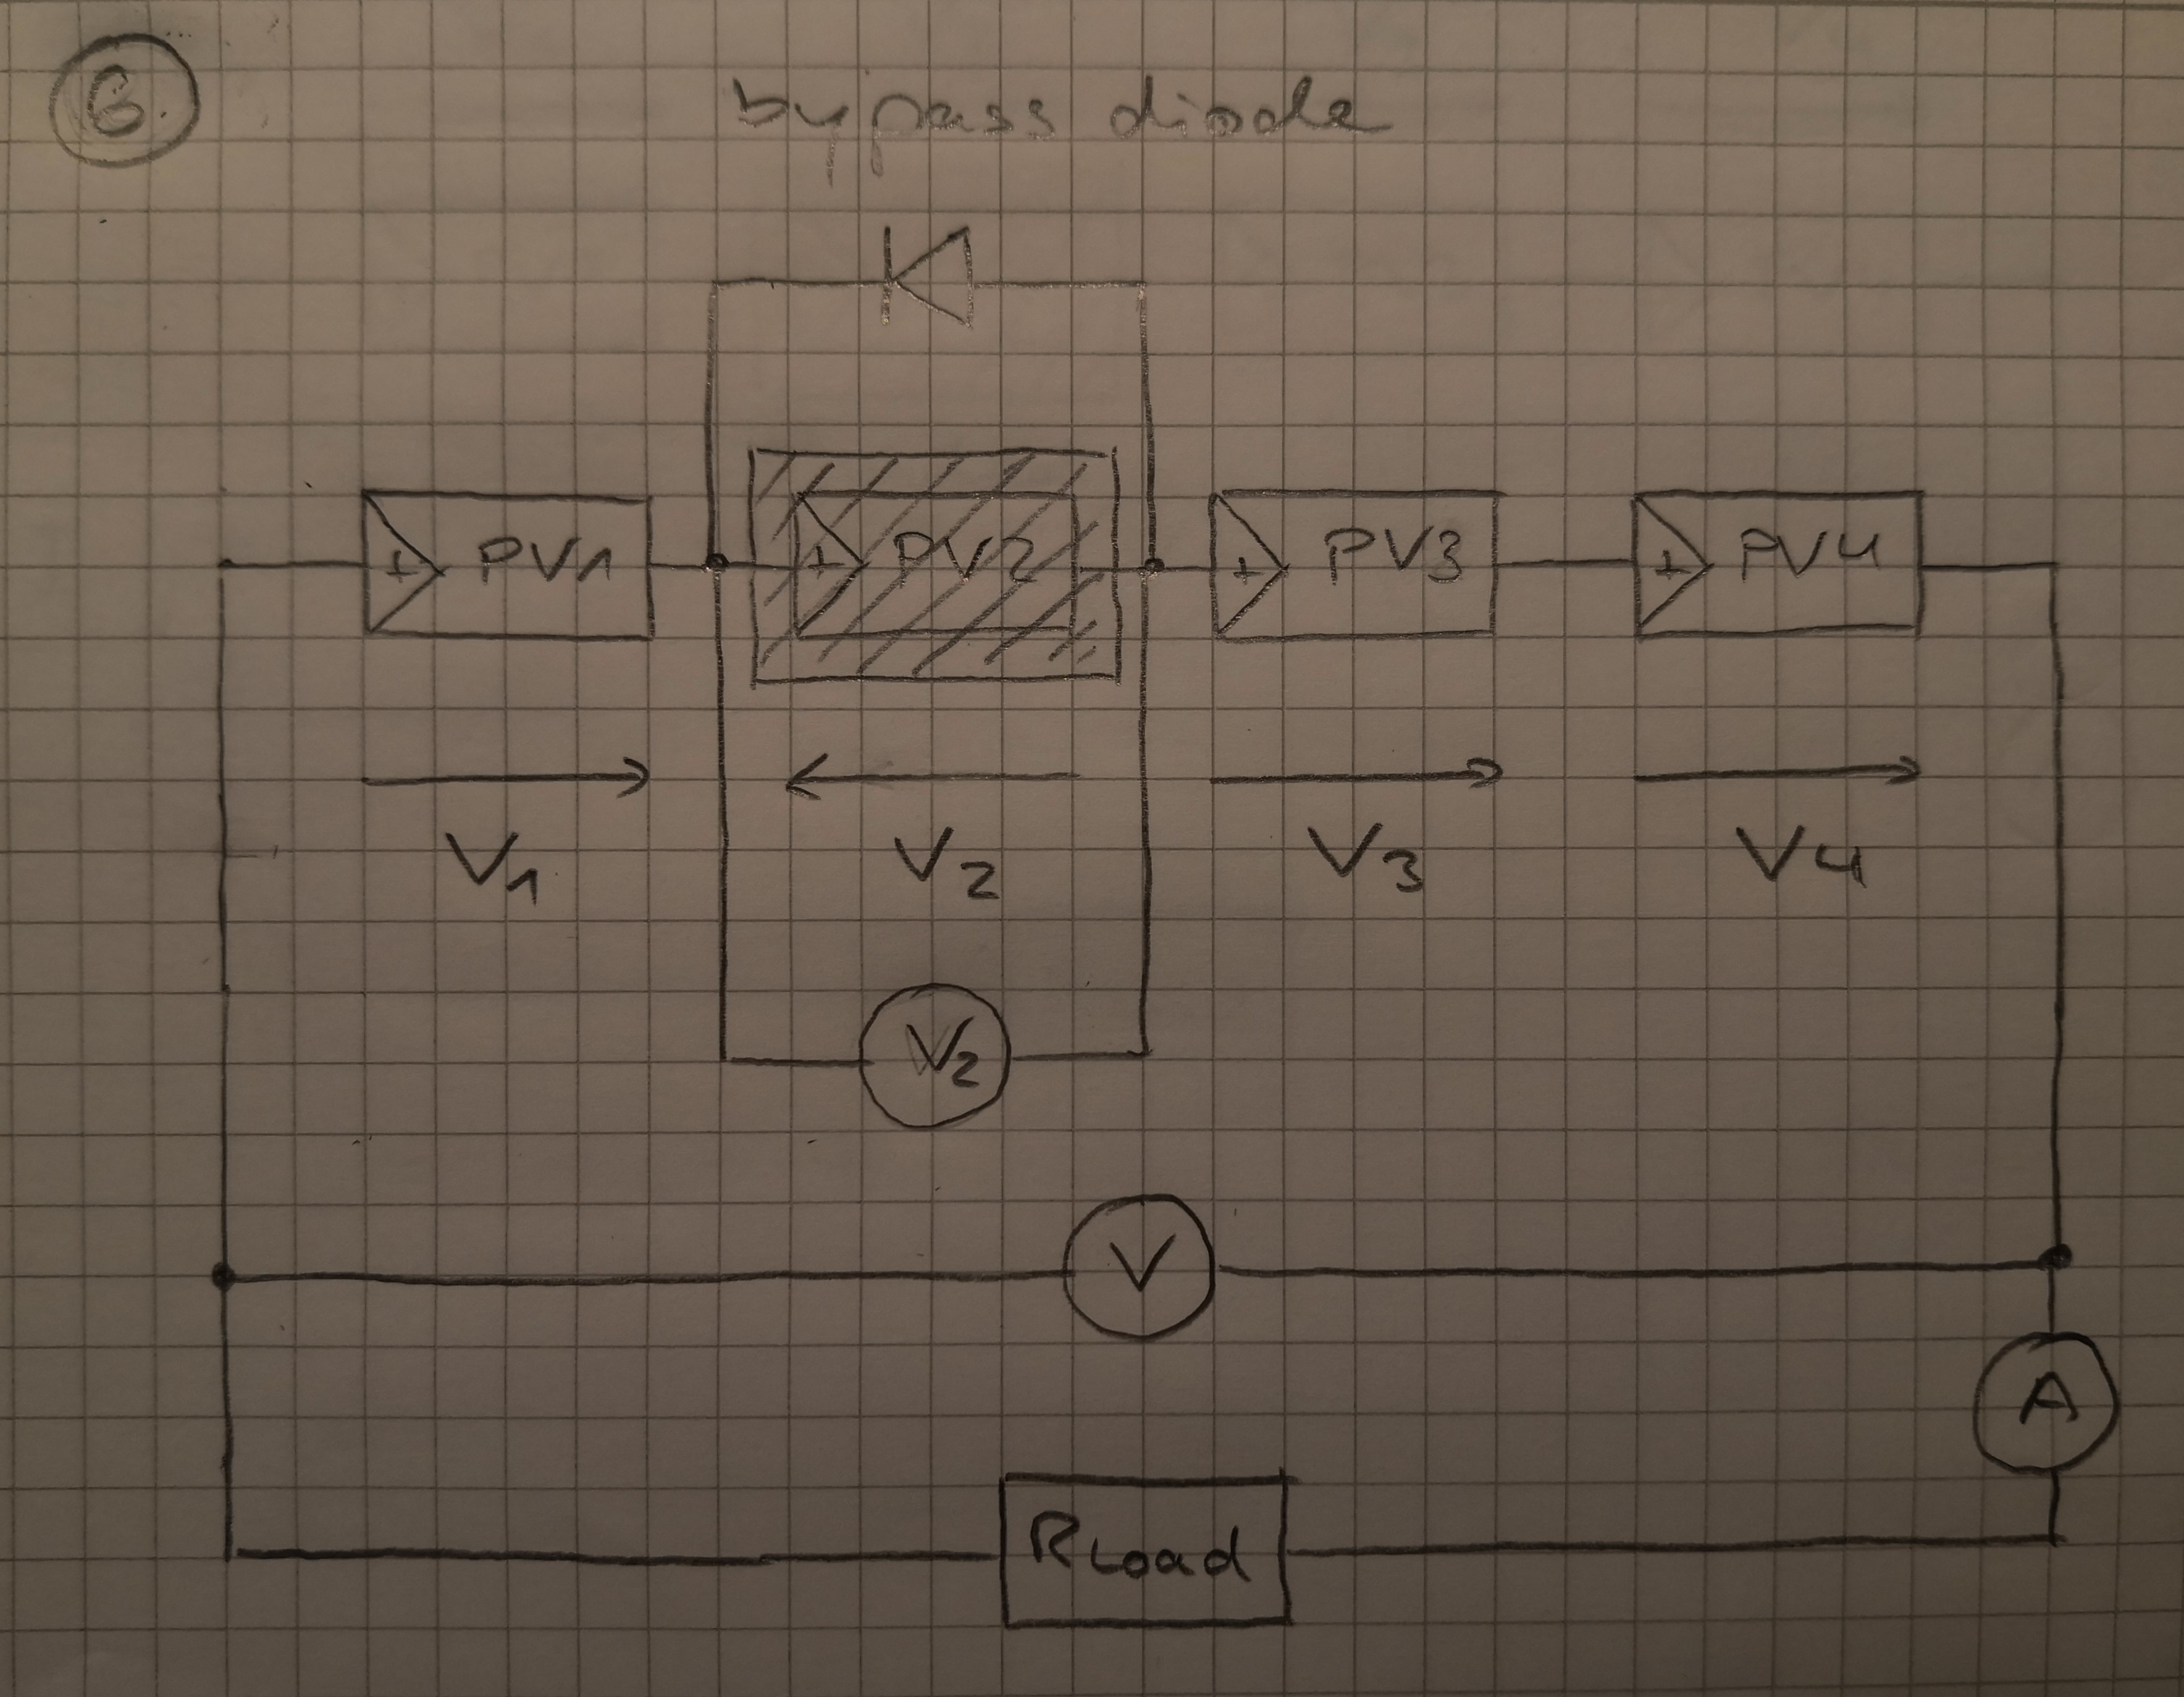 6
bypass diode
+ PV1 + PV2 + PV3 + PV4
V1 V2 V3 V4
V2
V
A
RLoad